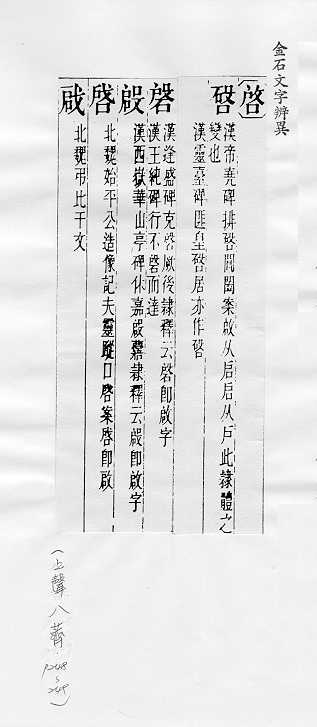 金石文字辨異
〔啓〕
漢帝堯碑排啓閶闔案啟从启启从戶此隸體之
變也
漢靈臺碑匪皇啓居亦作啓
漢逢盛碑克啓厥後隸釋云啓即啟字
漢王純碑行不啓而達
漢西嶽華山亭碑休嘉啟嘉隸釋云啟即啟字
北魏始平公造像記夫靈蹤□啓案啓即啟
北魏弔比干文
(上聲八薺
p.248
249)